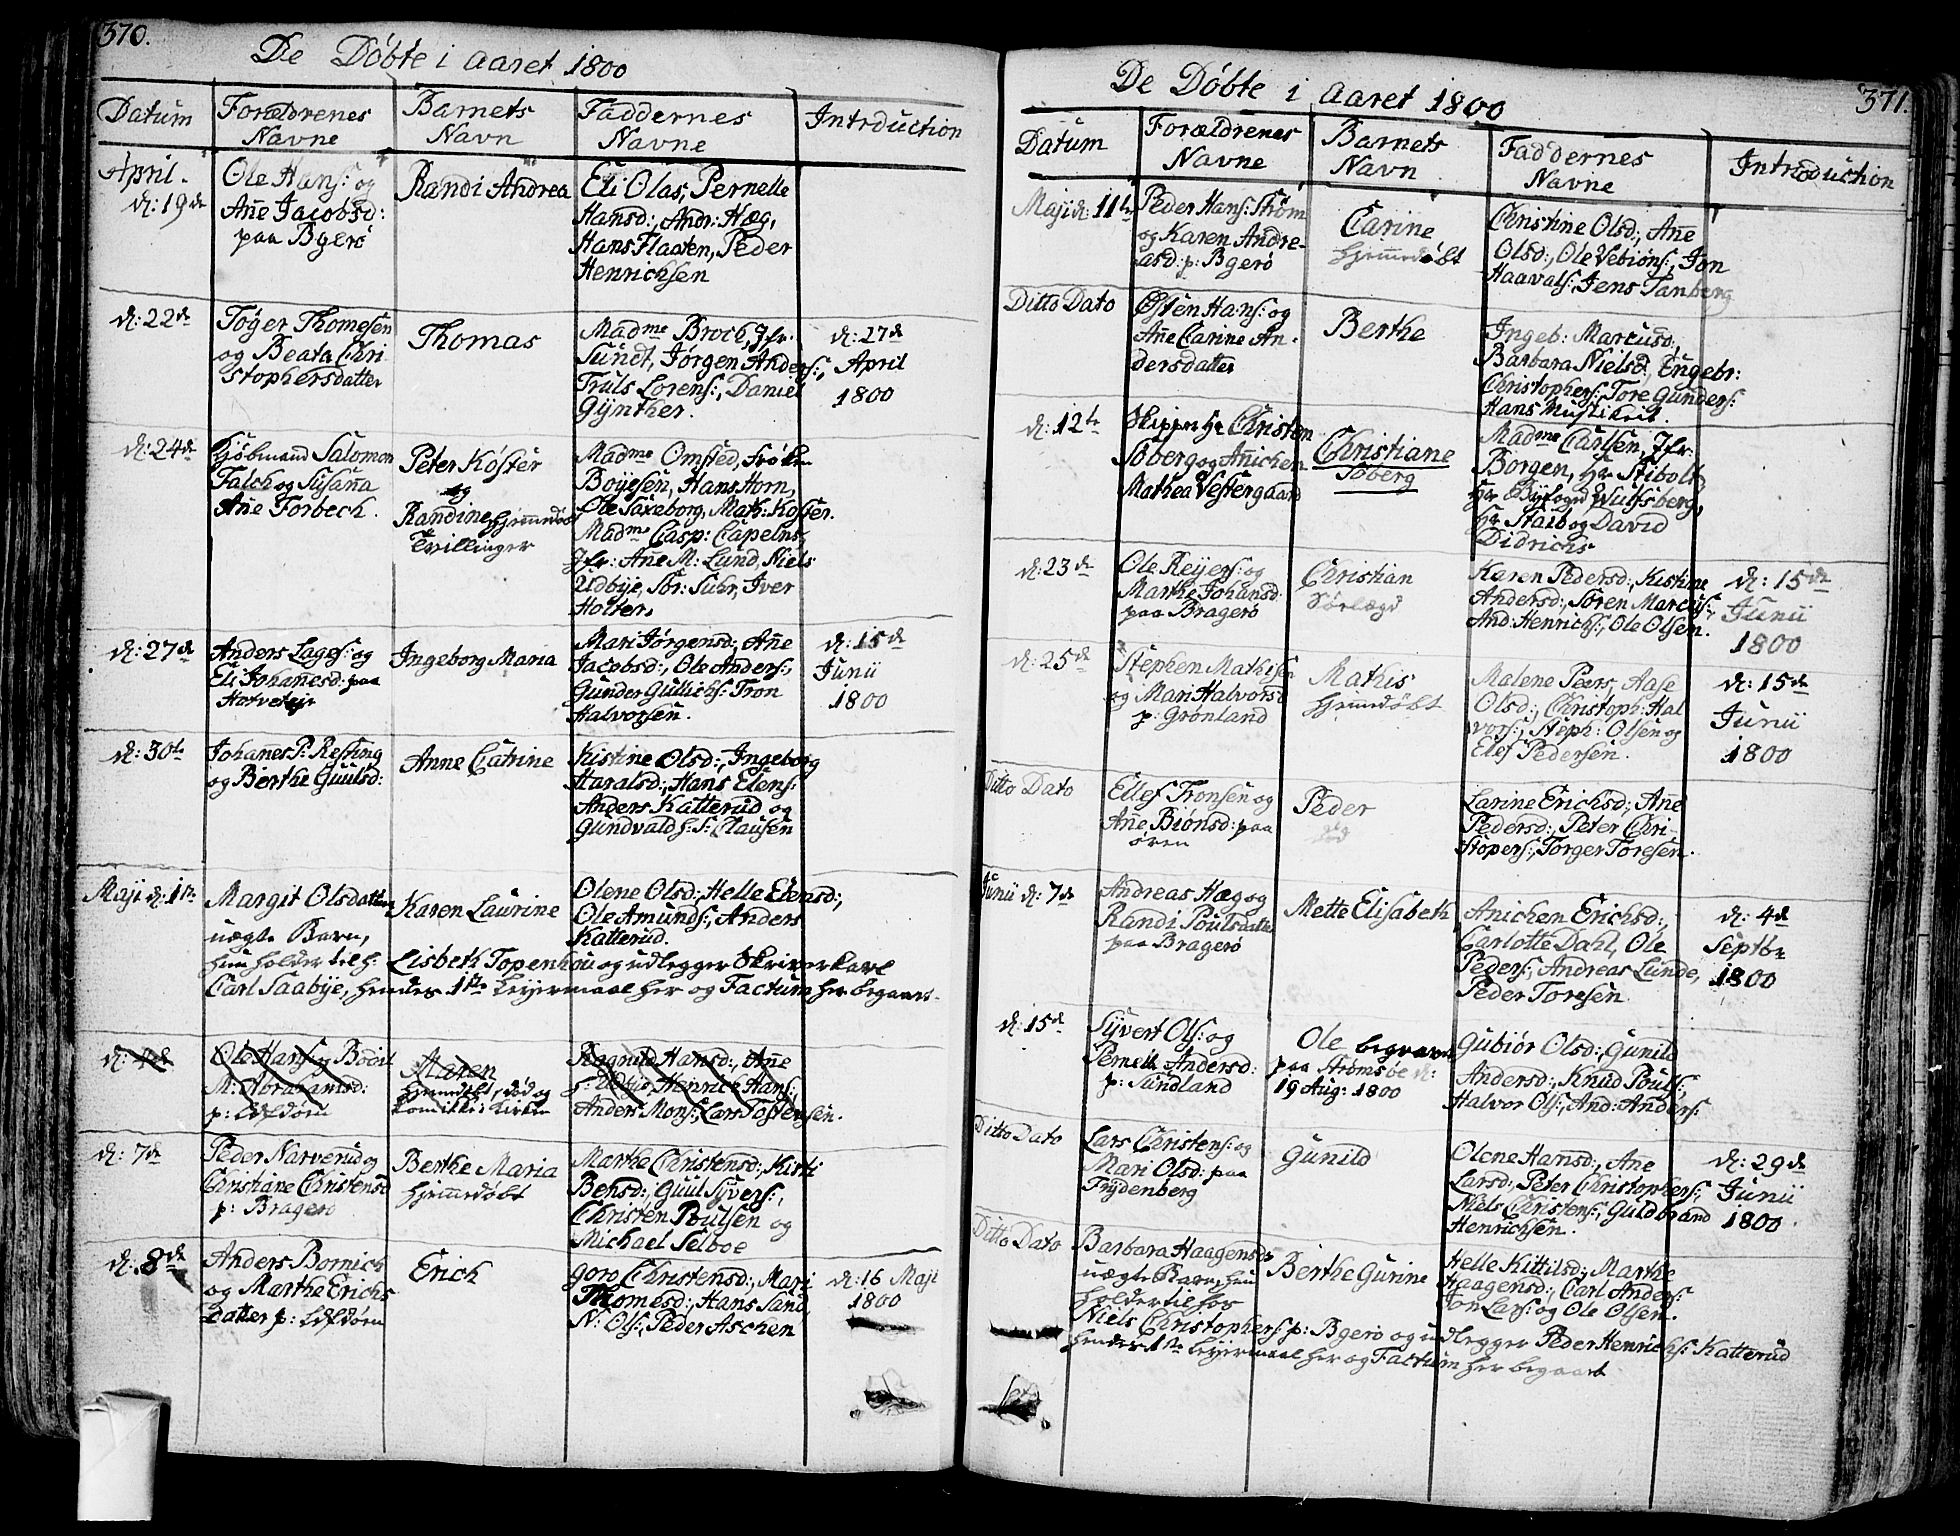 370.
De Döbte i Aaret 1800
Datum
Forældrenes Navne
Barnets Navn
Faddernes Navne
Introduction
April.
d: 19de
Ole Hans: og
Añe Jacobsd:
paa Bgerö
Randi Andrea
Eli Olas; Pernelle
Hansd:, Andr: Hæg,
Hans Flaaten, Peder
Henrichsen
d: 22de
Töger Thomesen
og Beata Chri
stophersdatter
Thomas
Madme Broch, Jfr.
Sundt, Jörgen Anders:,
Truls Lorens:, Daniel
Gÿnther.
d: 27de
April
1800
d: 24de
Kjöbmand Salomon
Falch og Susaña
Añe Forbech.
Peter Köster
og
Randine hjemmedöbt
Tvillinger
Madme Omsted, Fröken
Boyesen, Hans Horn,
Ole Saxeborg, Math: Koster.
Madme Casp: Capelns,
Jfr: Añe M: Lund, Niels
Udbÿe, Sör: Suhr, Iver
Holter.
d: 27de
Anders Lages: og
Eli Johañesd: paa
Ingeborg Maria
Mari Jörgensd:, Añe
Jacobsd:, Ole Anders:,
Gunder Gullichs: Tron
Halvorsen.
d: 15de
Junii
1800
d: 30te
Johanes P: Resting
og Berthe Guulsd:
Anne Catrine
Kistine Olsd:, Ingeborg
Haralsd:, Hans Elens:
Anders Katterud og
Gundvald H: S: Clausen
Maji d: 1te
Margit Olsdatter
uægte Barn,
Karen Laurine
Olene Olsd:, Helle Elensd:,
Ole Amunds:, Anders
Katterud.
hun holder til h: Lisbeth Topenhou og udlegger Skriverkarl
Carl Saabÿe, hendes 1te Leyermaal her og Factum her begaaet.
d: 4de
Ole Hans: og Bodil
M: Abrahamsd:
p: Ulfdöru
Maren
hjemmedöbt, död og
kom ikke i Kirken
Ragnild Hansd:, Añe
Henrich Hans:,
Anders Mons:, Lars Tostensen.
d: 7de
Peder Narverud og
Christiane Christensd
p: Bragerö
Berthe Maria
hjemmedöbt
Marthe Christensd:, Kirsti
Bensd:, Guul Sÿvers:,
Christen Poulsen og
Michael Selboe
d: 8de
Anders Bornich
og Marthe Erichs
datter p: Ulfdöru
Erich
Goro Christensd:, Mari
Thomesd:, Hans Sand,
N: Ols:, Peder Aschen
d: 16 Maji
1800
371.
De Döbte i Aaret 1800
Datum
Forældrenes Navne
Barnets Navn
Faddernes Navne
Introduction
Maji d: 11te
Peder Hans: Ström
og Karen Andre-
asd: p: Bgerö
Carine
hjemmedöbt
Christine Olsd:, Añe
Olsd:, Ole Vebions:, Jon
Haavals: Jens Tanberg
Ditto Dato
Østen Hans: og
Añe Carine An-
dersdatter
Berthe
Ingeb: Marcusd:,
Barbara Nielsd:, Engebr:
Christophers: Tore Gunders:
Hans
d: 12te
Skipper Hr Christen
Söberg og Añichen
Mathea Vestergaard
Christiane
Söberg
Madme Carlsen, Jfr.
Borgen, Hr Stibolt,
Hr Byfogd Wulfsberg,
Hr Staib og David
Didrichs
d: 23de
Ole Reÿers: og
Marthe Johansd
paa Bragerö
Christian
Karen Pedersd:, Kistine
Andersd:, Sören Marcus:,
And: Henrichs:, Ole Olsen.
d: 15de
Junii
1800
d: 25de
Stephen Mathisen
og Mari Halvorsd
p: Grönland
Mathis
hjemmedöbt
Malene Peers, Aase
Olsd:, Christoph: Hal
vors:, Steph: Olsen og
Elef Pedersen.
d: 15de
Junii
1800
Ditto Dato
Ellef Tronsen og
Añe Bionsd: paa
ören
Peder
Larine Erichsd:, Añe
Pedersd:, Peter Chri-
stopers:, Torger Toresen.
Junii d: 7de
Andreas Hæg og
Randi Poulsdatter
paa Bragerö
Mette Elisabeth
Anichen Erichsd:,
Carlotte Dahl, Ole
Peders:, Andreas Lunde,
Peder Toresen
d: 4de
Septbr
1800
d: 15de
Sÿvert Ols: og
Pernelle Andersd:
p: Sundland
Ole begraven
paa Strömsöe d:
19 Aug: 1800
Gubiör Olsd:, Gunild
Andersd:, Knud Pouls:,
Halvor Ols:, And: Anders:
Ditto Dato
Lars Christens: og
Mari Olsd: paa
Frÿdenberg
Gunild
Olene Hansd:, Añe
Larsd:, Peter Christophers:,
Niels Christens:, Guldbrand
Henrichsen.
d: 29de
Junii
1800
Ditto Dato
Barbara Haagensdr
uægte Barn, hun
holder til hos
Berthe Gurine
Helle Kittilsd:, Marthe
Haagensd:, Carl Anders:
Jon Lars: og Ole Olsen.
Niels Christophers: p: Bgerö og udlegger Peder Henrichs: Katterud
hendes 1te Leyermaal her og Factum her begaaet